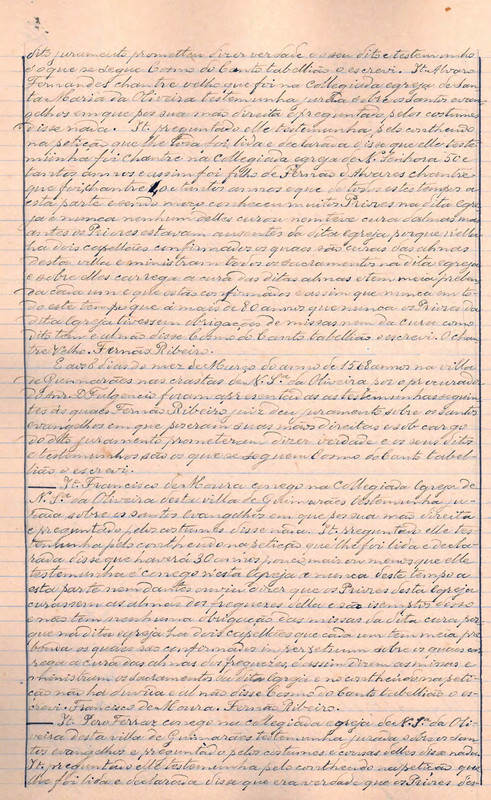 dito juramento prometteu dizer verdade e o seu dito e testemunho
é o que se segue Cosmo do Canto tabellião o escrevi. It. Alvaro
Fernandes chantre velho que foi na Collegiada egreja de San-
ta Maria da Oliveira testemunha jurada sobre os Santos evan-
gelhos em que pos sua mão direita e preguntado pelos costumes
disse nada. It. preguntado elle testemunha pelo contheudo
na petição que lhe toda foi lida e declarada disse que elle teste-
munha foi chantre na Collegiada egreja de N. Senhora 50 e
tantos annos e assim foi filho de Fernão d'Alvares chantre
que foi chantre e tantos annos e que de todos estes tempos a
esta parte e sendo moço conheceu muitos Priores na dita egre-
ja e nunca nenhum delles curou nem teve cura d'almas mas
antes os Priores estavam ausentes da dita egreja porque n'ella
ha dois capellães confirmados os quaes são curas das almas
desta villa e ministram todos os Sacramentos na dita egreja
e sobre elles carrega a cura das ditas almas e tem meia preben-
da cada um e que estes confirmados e assim que nunca em to-
do este tempo que á mais de 80 annos que nunca os Priores da
dita Egreja tivessem obrigação de missas nem da cura como
dito tem e al não disse Cosmo do Canto tabellião o escrevi. O chan-
tre Velho. Fernão Ribeiro.
E aos 8 dias do mez de Março do anno de 1568 annos na villa
de Guimarães nas crastas de N. Sr.ª da Oliveira por o procurador
D. Fulgencio foram apresentadas as testemunhas seguin-
tes ás quaes Fernão Ribeiro juiz deu juramento sobre os Santos
evangelhos em que poseram suas mãos direitas e sob cargo
do dito juramento prometeram dizer verdade e os seus ditos
e testemunhos são os que se seguem Cosmo do Canto tabel-
lião o escrevi.
It. Francisco de Moura conego na Collegiada Egreja de
N. Sr.ª da Oliveira desta villa de Guimarães testemunha ju-
rada sobre os santos evangelhos em que pos sua mão direita
e preguntado pelos costumes disse nada. It. preguntado elle tes-
temunha pelo contheudo na petição que lhe foi lida e decla-
rada disse que haverá 30 annos pouco mais ou menos que elle
testemunha é conego nesta Egreja e nunca deste tempo a
esta parte nem d'antes ouviu dizer que os Priores desta Egreja
curassem as almas dos freguezes della e são isemptos disso
e não tem nenhuma obrigação das missas da dita cura por-
que na dita egreja ha dois capellães que cada um tem meia pre-
benda os quaes são confirmados in perpetuum sobre os quaes car-
rega a cura das almas dos freguezes, e assim dizem as missas e
ministram os Sacramentos da dita Egreja e no contheudo na peti-
ção não ha duvida e al não disse Cosmo do Canto tabellião o es-
crevi. Francisco de Moura. Fernão Ribeiro.
It. Pero Ferraz conego na collegiada egreja de N. Sr.ª da Oli-
veira desta villa de Guimarães testemunha jurada sobre os San-
tos evangelhos e preguntado pelos costumes e cousas delles disse nada.
It. preguntado elle testemunha pelo contheudo na petição que
lhe foi lida e declarada disse que era verdade que os Priores des-